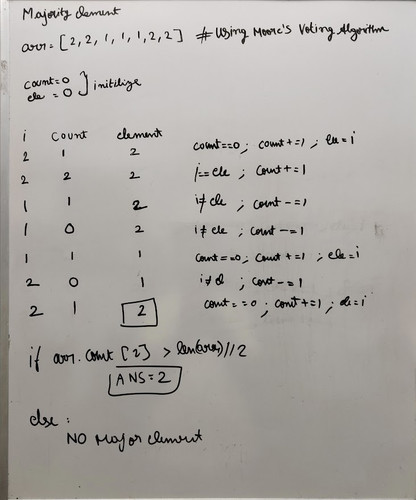 Majority element
arr = [2, 2, 1, 1, 1, 2, 2] # Using Moore's Voting Algorithm
count=0
ele = 0 } initilize
i Count element
2 1 2 count==0 ; count+=1 ; ele=i
2 2 2 i==ele ; count+=1
1 1 2 i≠ele ; count-=1
1 0 2 i≠ele ; count-=1
1 1 1 count==0 ; count+=1 ; ele=i
2 0 1 i≠el ; cont-=1
2 1 2 cont==0 ; cont+=1 ; ele=i
if arr.cont [2] > len(arr)//2
ANS=2
else :
NO Major element